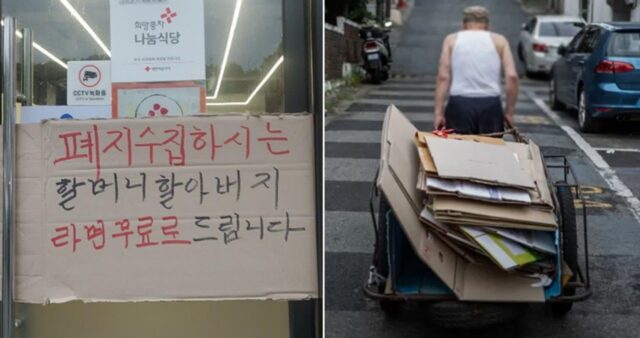 희망풍차
나눔식당
CCTV녹화중
폐지수집하시는
할머니할아버지
라면무료로드립니다